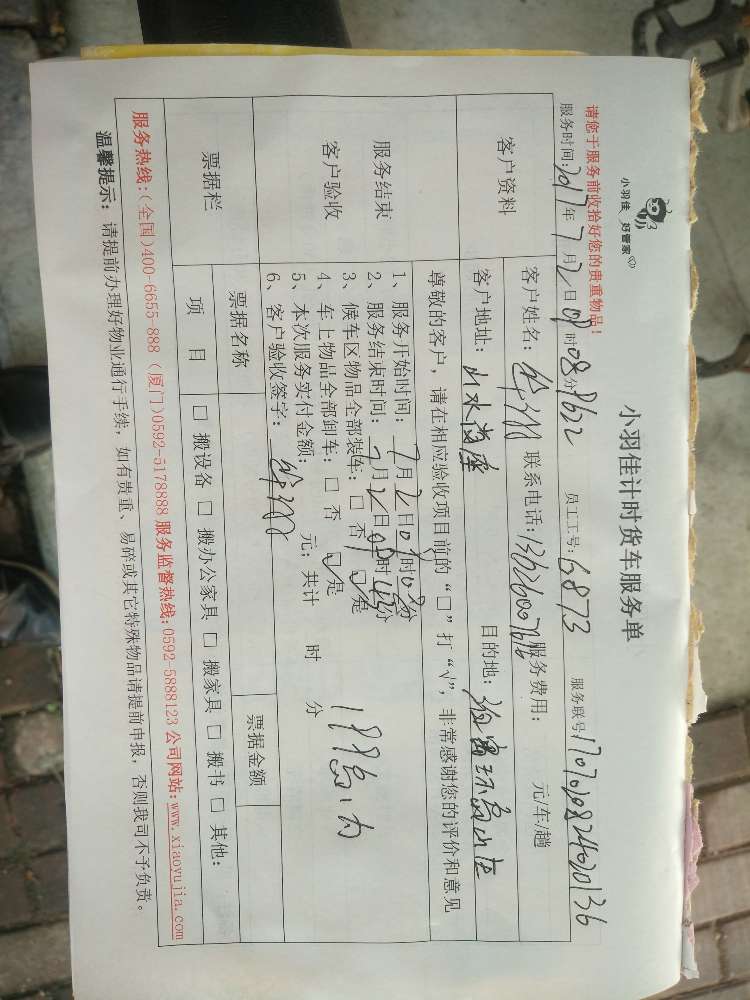 小羽佳 好管家
小羽佳计时货车服务单
请您于服务前收拾好您的贵重物品！
服务时间：2017年7月2日08时08分 8622 员工工号：6873 服务联号
客户资料
客户姓名： 联系电话： 服务费用： 元/车/趟
客户地址：山水尚座 目的地：
尊敬的客户，请在相应验收项目前的“□”打“√”，非常感谢您的评价和意见
服务结束
客户验收
1、服务开始时间：7月2日08时08分
2、服务结束时间：7月2日09时 分
3、候车区物品全部装车：□ 否 ☑ 是
4、车上物品全部卸车：□ 否 ☑ 是
5、本次服务实付金额： 元；共计 时 分
6、客户验收签字：
票据栏
票据名称 票据金额
项 目 □ 搬设备 □ 搬办公家具 □ 搬家具 □ 搬书 □ 其他：
服务热线：（全国）400-6655-888 （厦门）0592-5178888 服务监督热线：0592-5888123 公司网站：www.xiaoyujia.com
温馨提示： 请提前办理好物业通行手续，如有贵重、易碎或其它特殊物品请提前申报，否则我司不予负责。